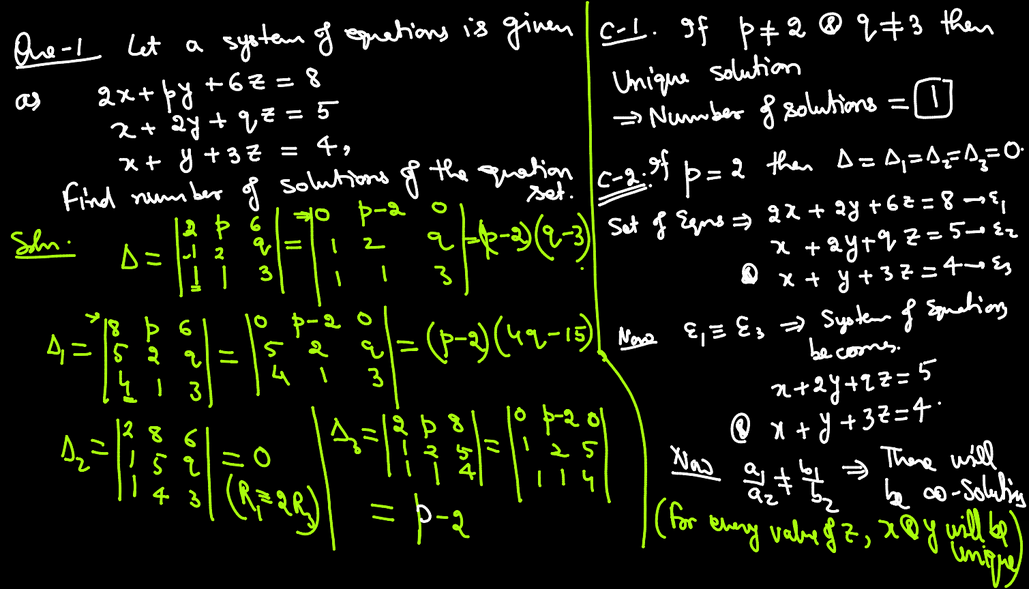 Que-1 Let a system of equations is given
as 2x + py + 6z = 8
x + 2y + qz = 5
x + y + 3z = 4,
Find number of solutions of the equation
set.
Soln. Δ = |2 p 6; 1 2 q; 1 1 3| = |0 p-2 0; 1 2 q; 1 1 3| = (p-2)(q-3).
Δ₁ = |8 p 6; 5 2 q; 4 1 3| = |0 p-2 0; 5 2 q; 4 1 3| = (p-2)(4q-15)
Δ₂ = |2 8 6; 1 5 q; 1 4 3| = 0
(R₁ ≡ 2R₃)
Δ₃ = |2 p 8; 1 2 5; 1 1 4| = |0 p-2 0; 1 2 5; 1 1 4|
= p-2
C-1. If p ≠ 2 & q ≠ 3 then
Unique solution
⇒ Number of solutions = 1
C-2. If p = 2 then Δ = Δ₁ = Δ₂ = Δ₃ = 0.
Set of Eqns ⇒ 2x + 2y + 6z = 8 → ε₁
x + 2y + q z = 5 → ε₂
& x + y + 3z = 4 → ε₃
Now ε₁ ≡ ε₃ ⇒ System of Equations
becomes.
x + 2y + qz = 5
& x + y + 3z = 4.
Now a₁/a₂ ≠ b₁/b₂ ⇒ There will
be ∞-Solutions
(For every value of z, x & y will be
unique)